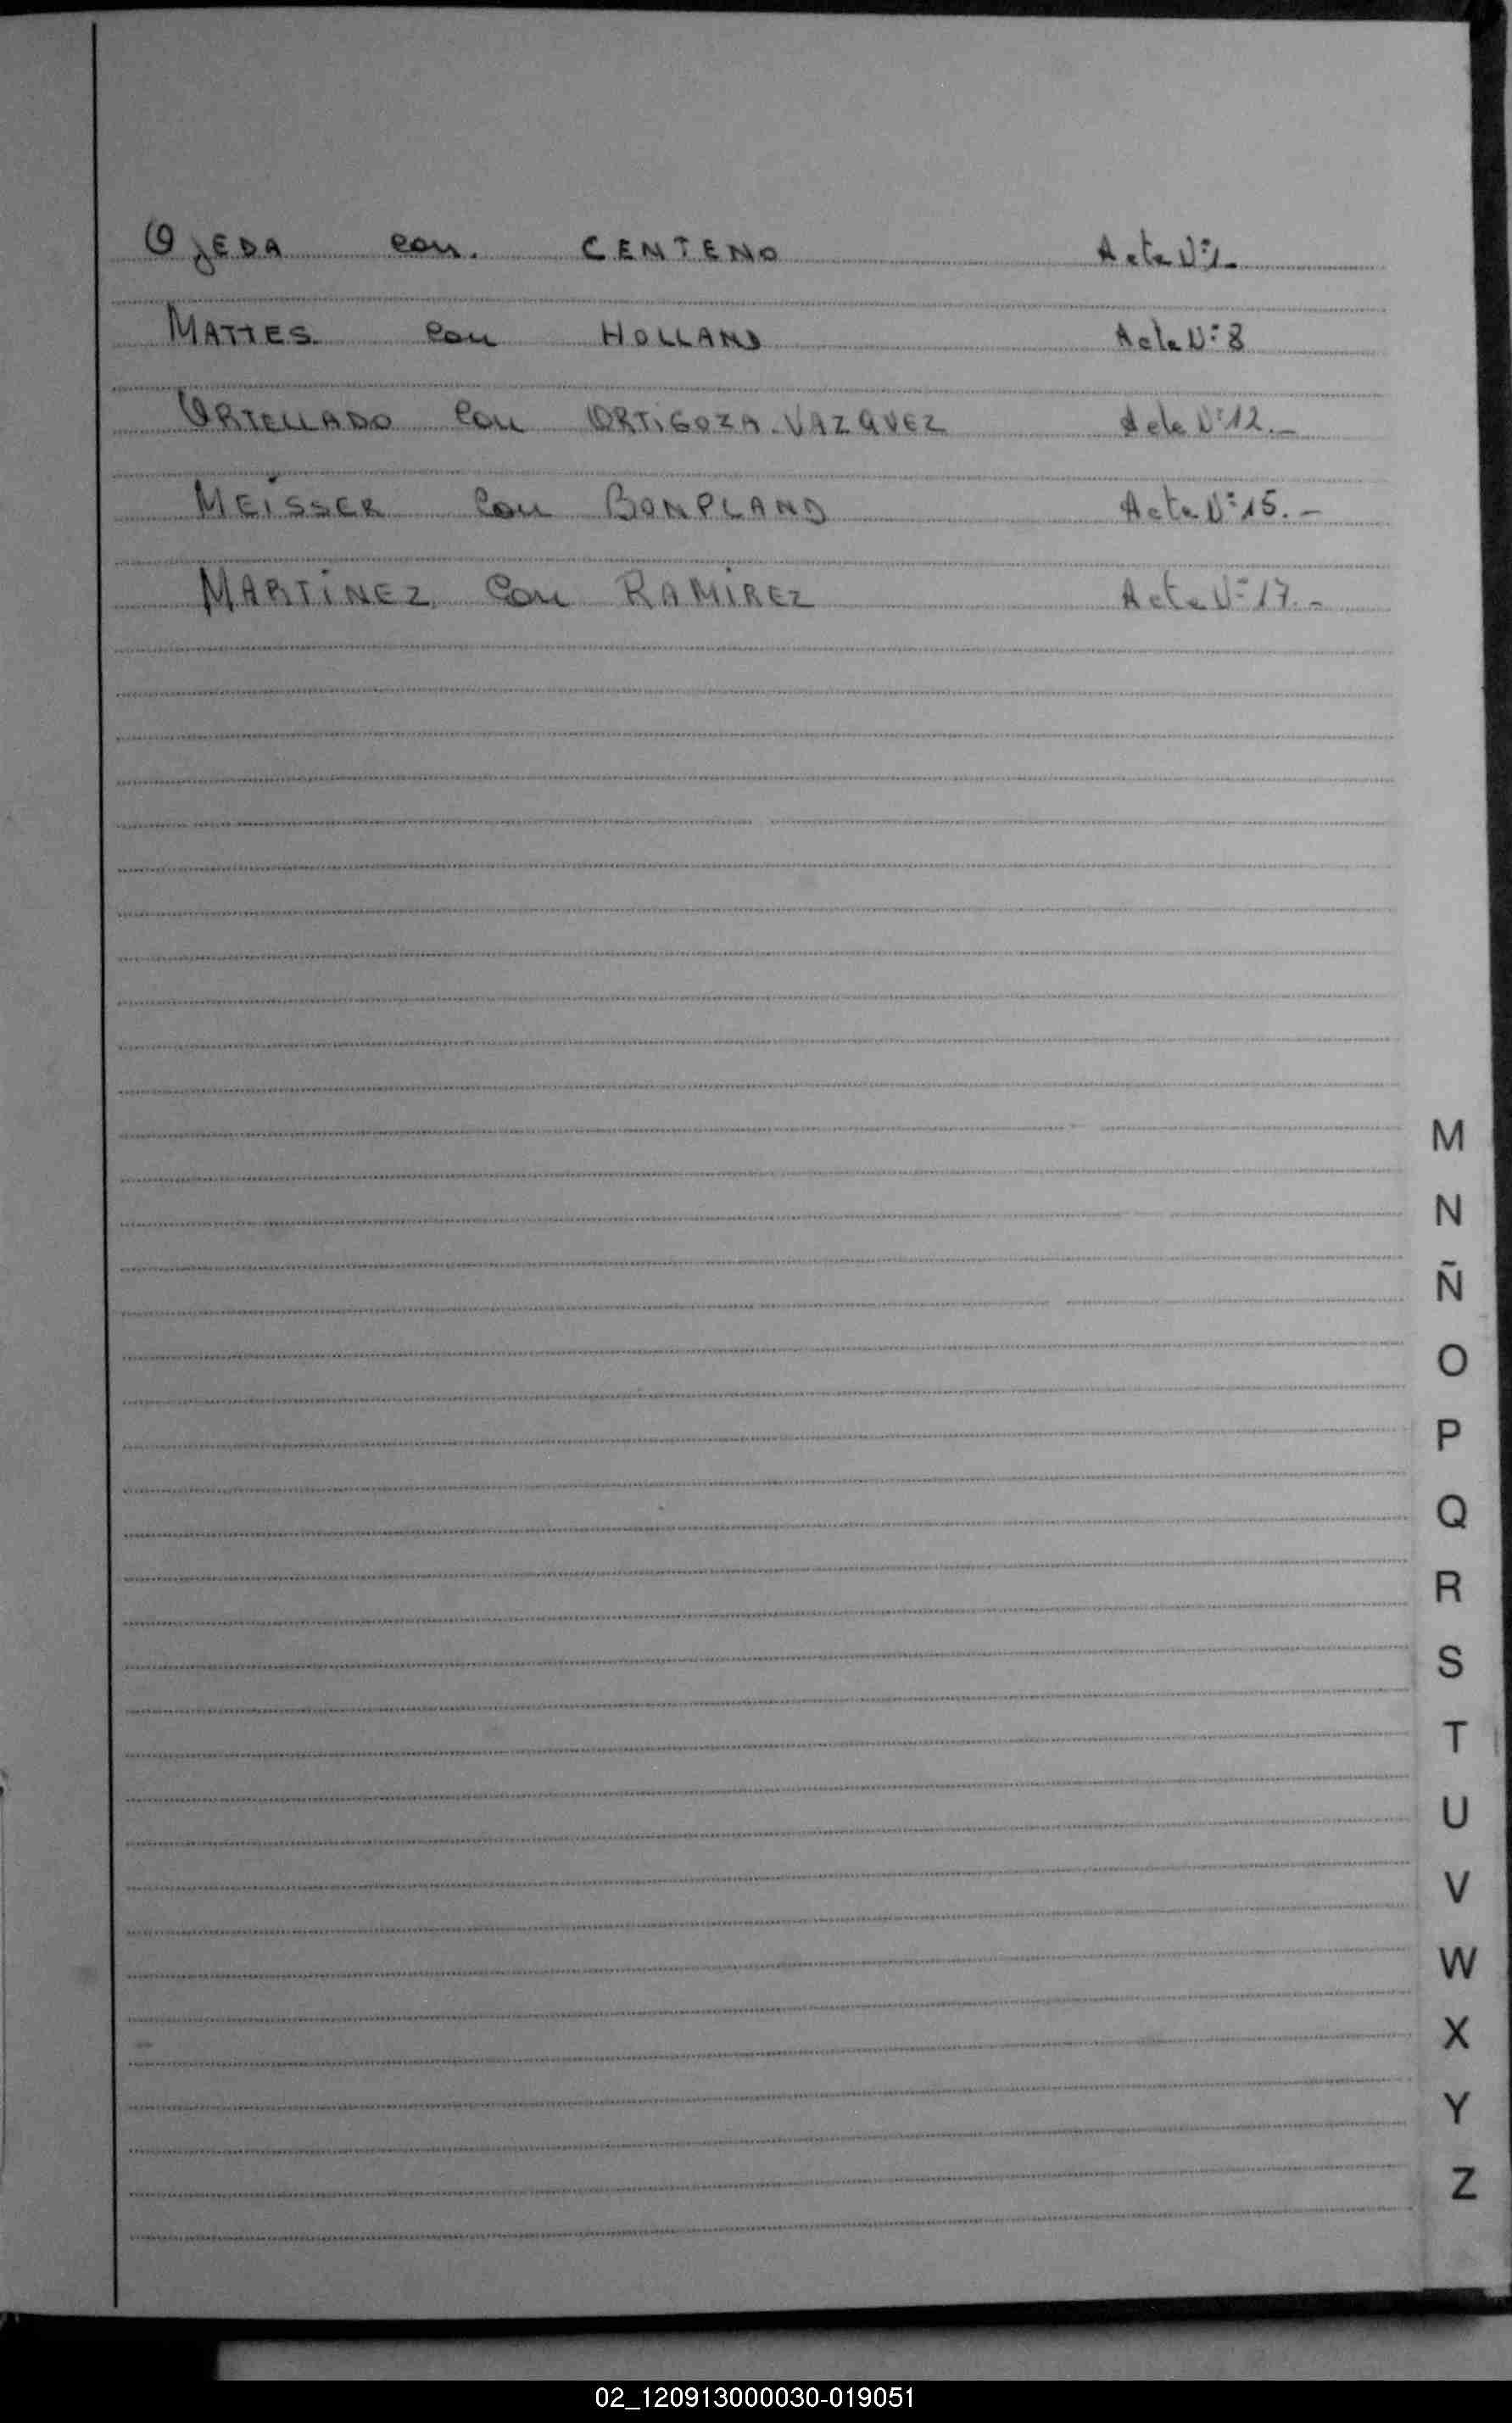 OJEDA con. CENTENO Acta Nº1_
MATTES con HOLLAND Acta Nº8
ORTELLADO con ORTIGOZA-VAZQUEZ Acta Nº12._
MEISSER con BONPLAND Acta Nº15.-
MARTINEZ con RAMIREZ Acta Nº17.-
M
N
Ñ
O
P
Q
R
S
T
U
V
W
X
Y
Z
02_120913000030-019051